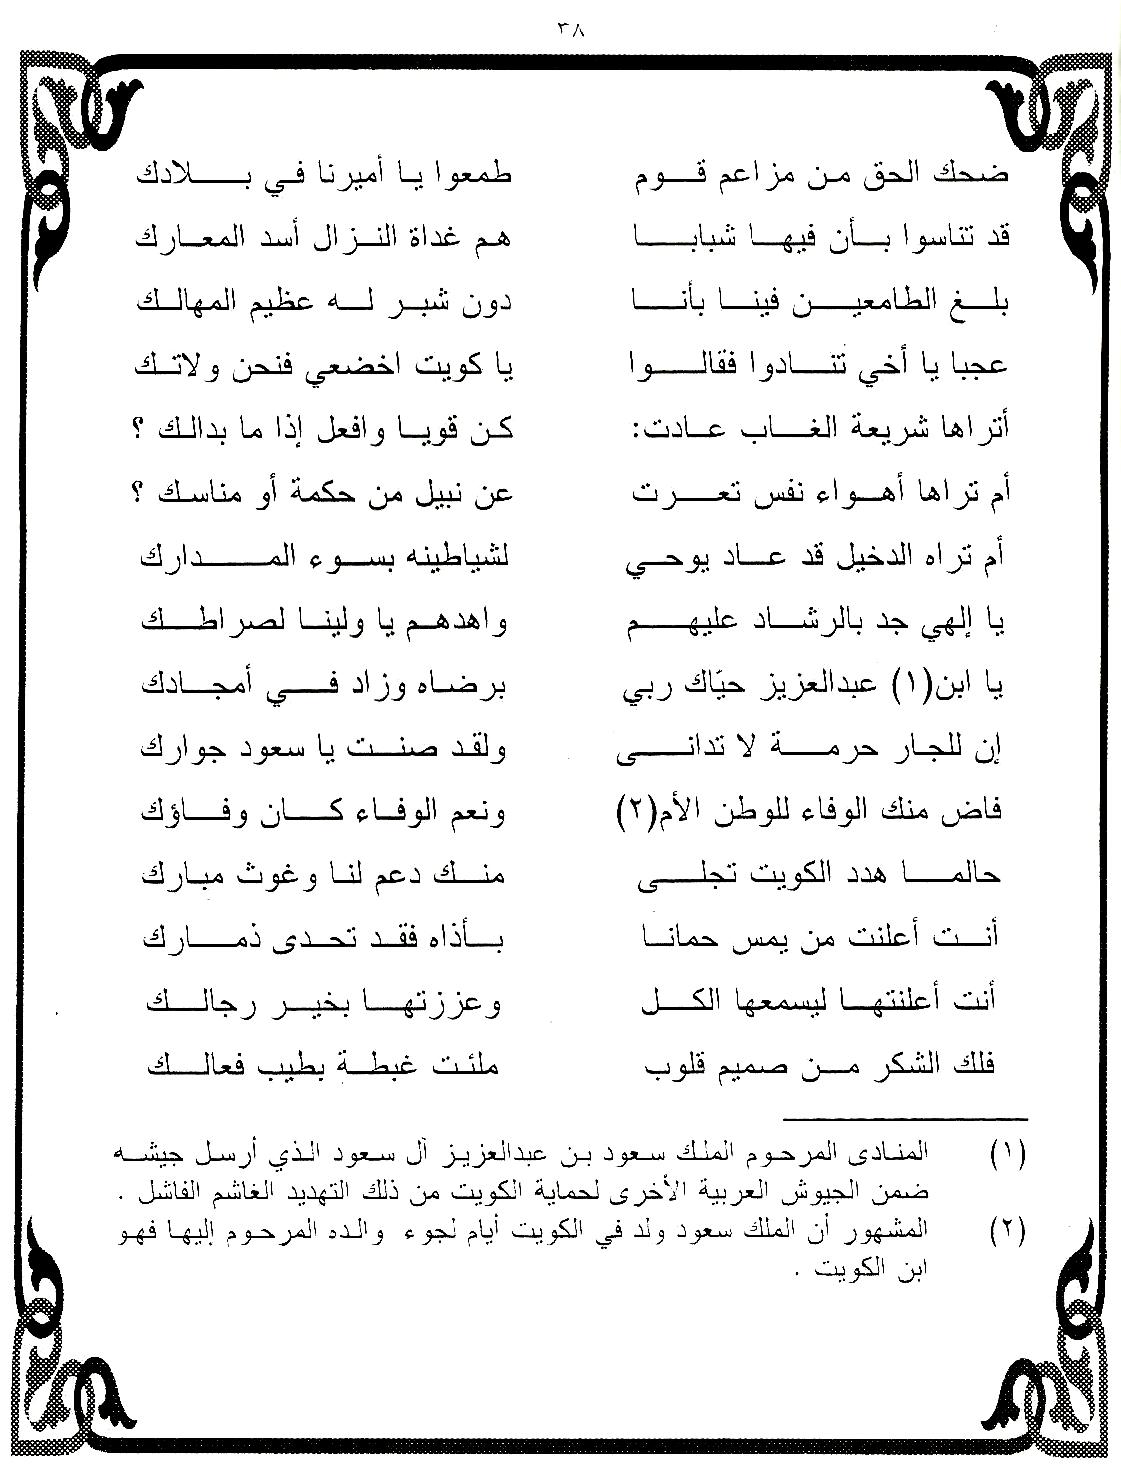 ٣٨
ضحك الحق من مزاعم قوم طمعوا يا أميرنا في بلادك
قد تناسوا بأن فيها شبابا هم غداة النزال أسد المعارك
بلغ الطامعين فينا بأنا دون شبر له عظيم المهالك
عجبا يا أخي تنادوا فقالوا يا كويت اخضعي فنحن ولاتك
أتراها شريعة الغاب عادت: كن قويا وافعل إذا ما بدالك ؟
أم تراها أهواء نفس تعرت عن نبيل من حكمة أو مناسك ؟
أم تراه الدخيل قد عاد يوحي لشياطينه بسوء المدارك
يا إلهي جد بالرشاد عليهم واهدهم يا ولينا لصراطك
يا ابن(١) عبدالعزيز حيّاك ربي برضاه وزاد في أمجادك
إن للجار حرمة لا تدانى ولقد صنت يا سعود جوارك
فاض منك الوفاء للوطن الأم(٢) ونعم الوفاء كان وفاؤك
حالما هدد الكويت تجلى منك دعم لنا وغوث مبارك
أنت أعلنت من يمس حمانا بأذاه فقد تحدى ذمارك
أنت أعلنتها ليسمعها الكل وعززتها بخير رجالك
فلك الشكر من صميم قلوب ملئت غبطة بطيب فعالك
(١) المنادى المرحوم الملك سعود بن عبدالعزيز آل سعود الذي أرسل جيشه
ضمن الجيوش العربية الأخرى لحماية الكويت من ذلك التهديد الغاشم الفاشل .
(٢) المشهور أن الملك سعود ولد في الكويت أيام لجوء والده المرحوم إليها فهو
ابن الكويت .